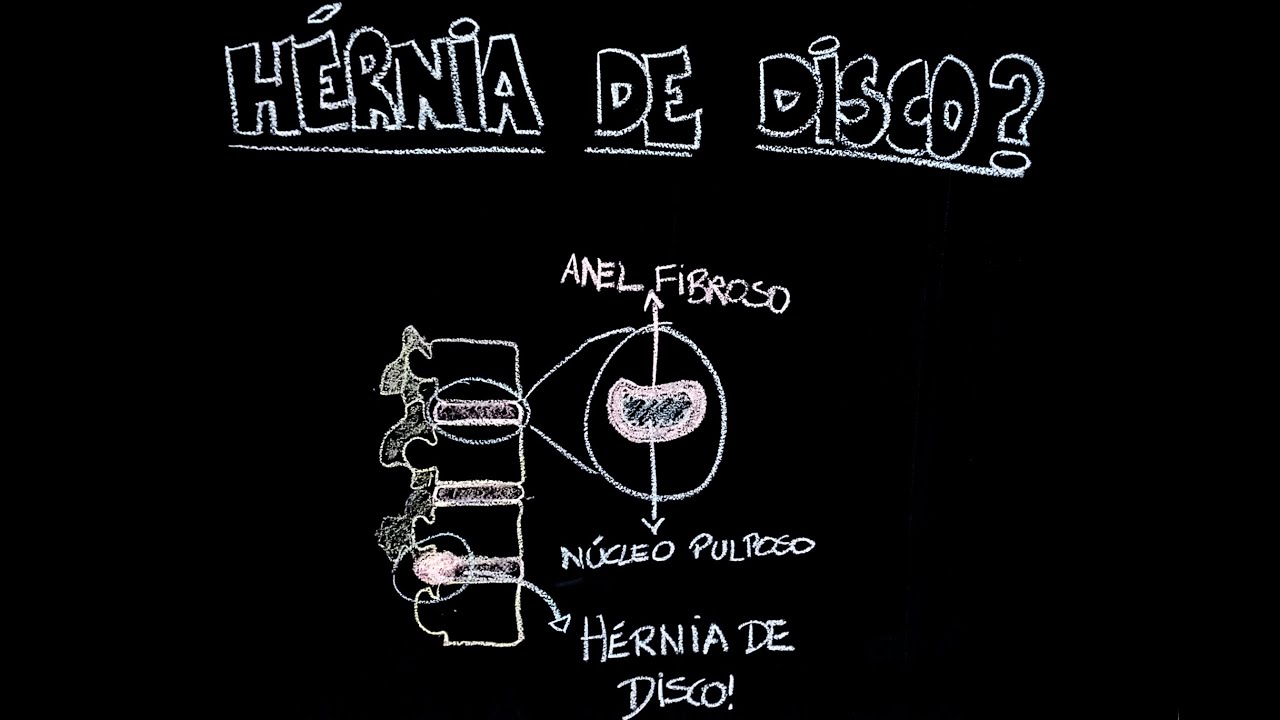 HÉRNIA DE DISCO?
ANEL FIBROSO
NÚCLEO PULPOSO
HÉRNIA DE
DISCO!